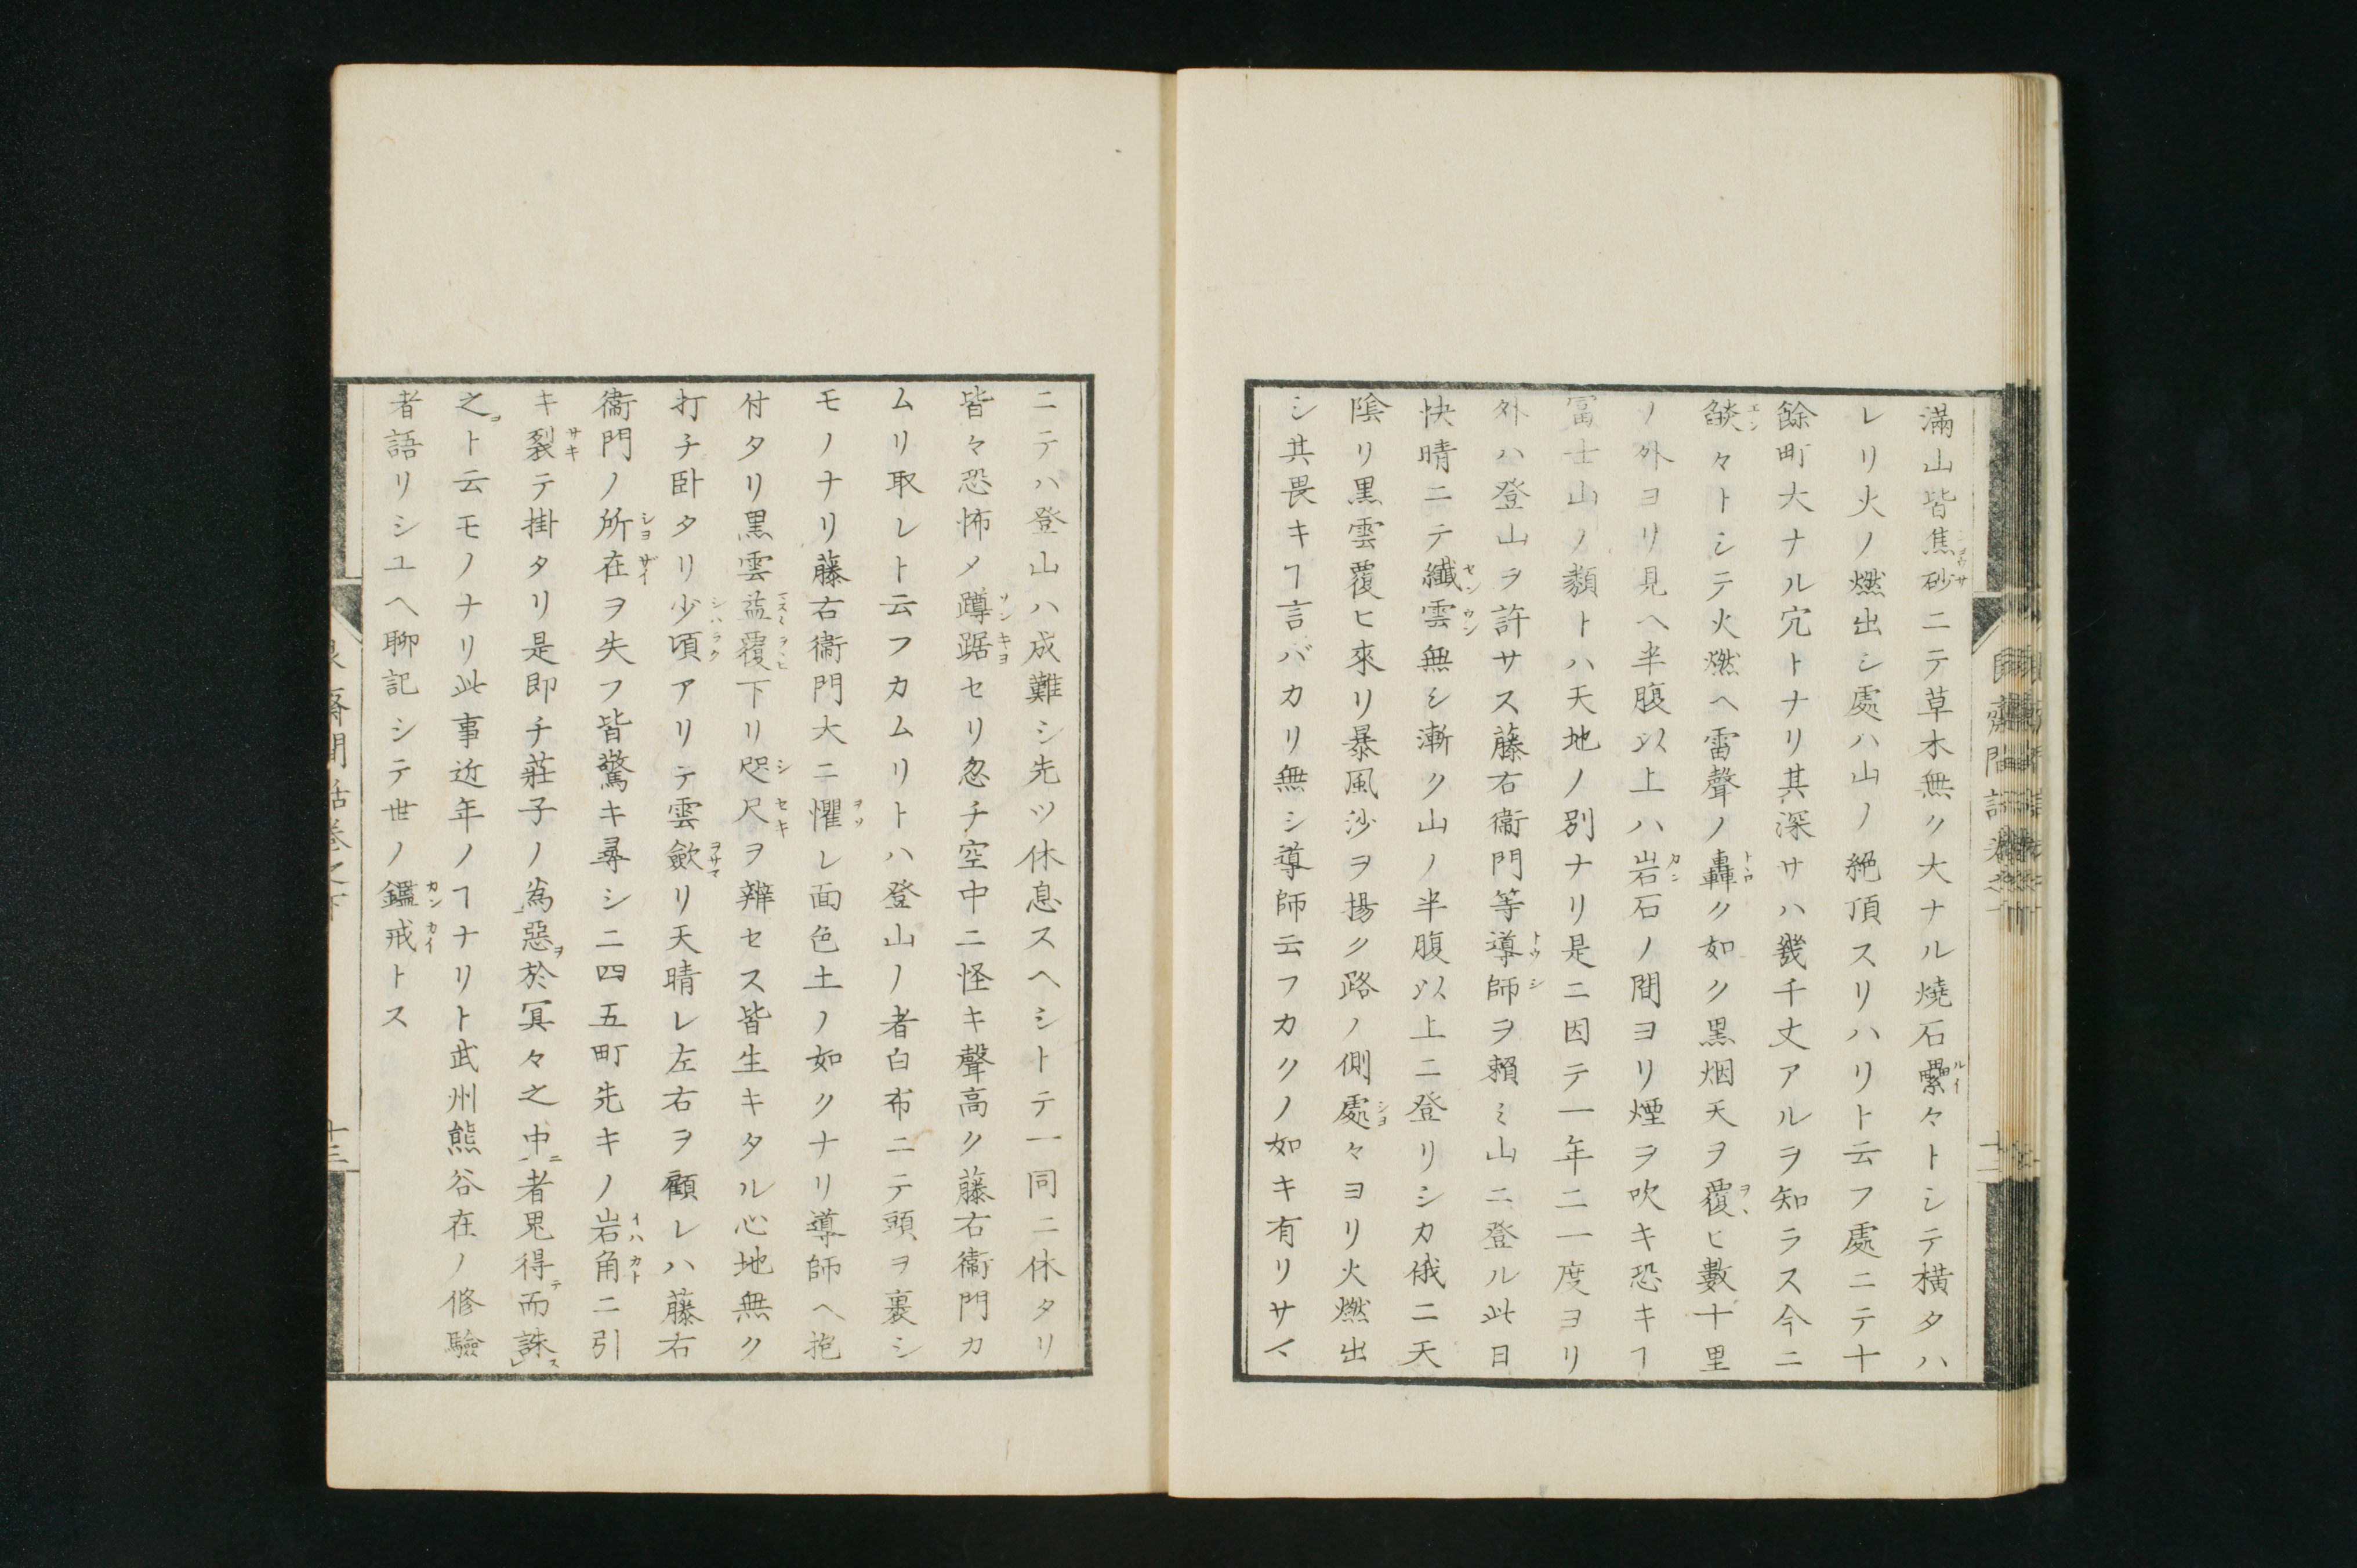 滿山皆焦砂ニテ草木無ク大ナル燒石纍々トシテ横タハ
レリ火ノ燃出シ處ハ山ノ絶頂スリハリト云フ處ニテ十
餘町大ナル穴トナリ其深サハ幾千丈アルヲ知ラス今ニ
燄々トシテ火燃ヘ雷聲ノ轟ク如ク黒烟天ヲ覆ヒ數十里
ノ外ヨリ見ヘ半腹以上ハ岩石ノ間ヨリ煙ヲ吹キ恐キヿ
富士山ノ類トハ天地ノ別ナリ是ニ因テ一年ニ一度ヨリ
外ハ登山ヲ許サス藤右衞門等導師ヲ頼ミ山ニ登ル此日
快晴ニテ纎雲無シ漸ク山ノ半腹以上ニ登リシカ俄ニ天
陰リ黒雲覆ヒ來リ暴風沙ヲ揚ク路ノ側處々ヨリ火燃出
シ其畏キヿ言バカリ無シ導師云フカクノ如キ有リサマ
ニテハ登山ハ成難シ先ツ休息スヘシトテ一同ニ休タリ
皆々恐怖メ蹲踞セリ忽チ空中ニ怪キ聲高ク藤右衞門カ
ムリ取レト云フカムリトハ登山ノ者白布ニテ頭ヲ裏シ
モノナリ藤右衞門大ニ懼レ面色土ノ如クナリ導師ヘ抱
付タリ黒雲益覆下リ咫尺ヲ辨セス皆生キタル心地無ク
打チ臥タリ少頃アリテ雲歛リ天晴レ左右ヲ顧レハ藤右
衞門ノ所在ヲ失フ皆驚キ尋シニ四五町先キノ岩角ニ引
キ裂テ掛タリ是即チ莊子ノ為惡於冥々之中者鬼得而誅
之ト云モノナリ此事近年ノヿナリト武州熊谷在ノ修驗
者語リシユヘ聊記シテ世ノ鑑戒トス